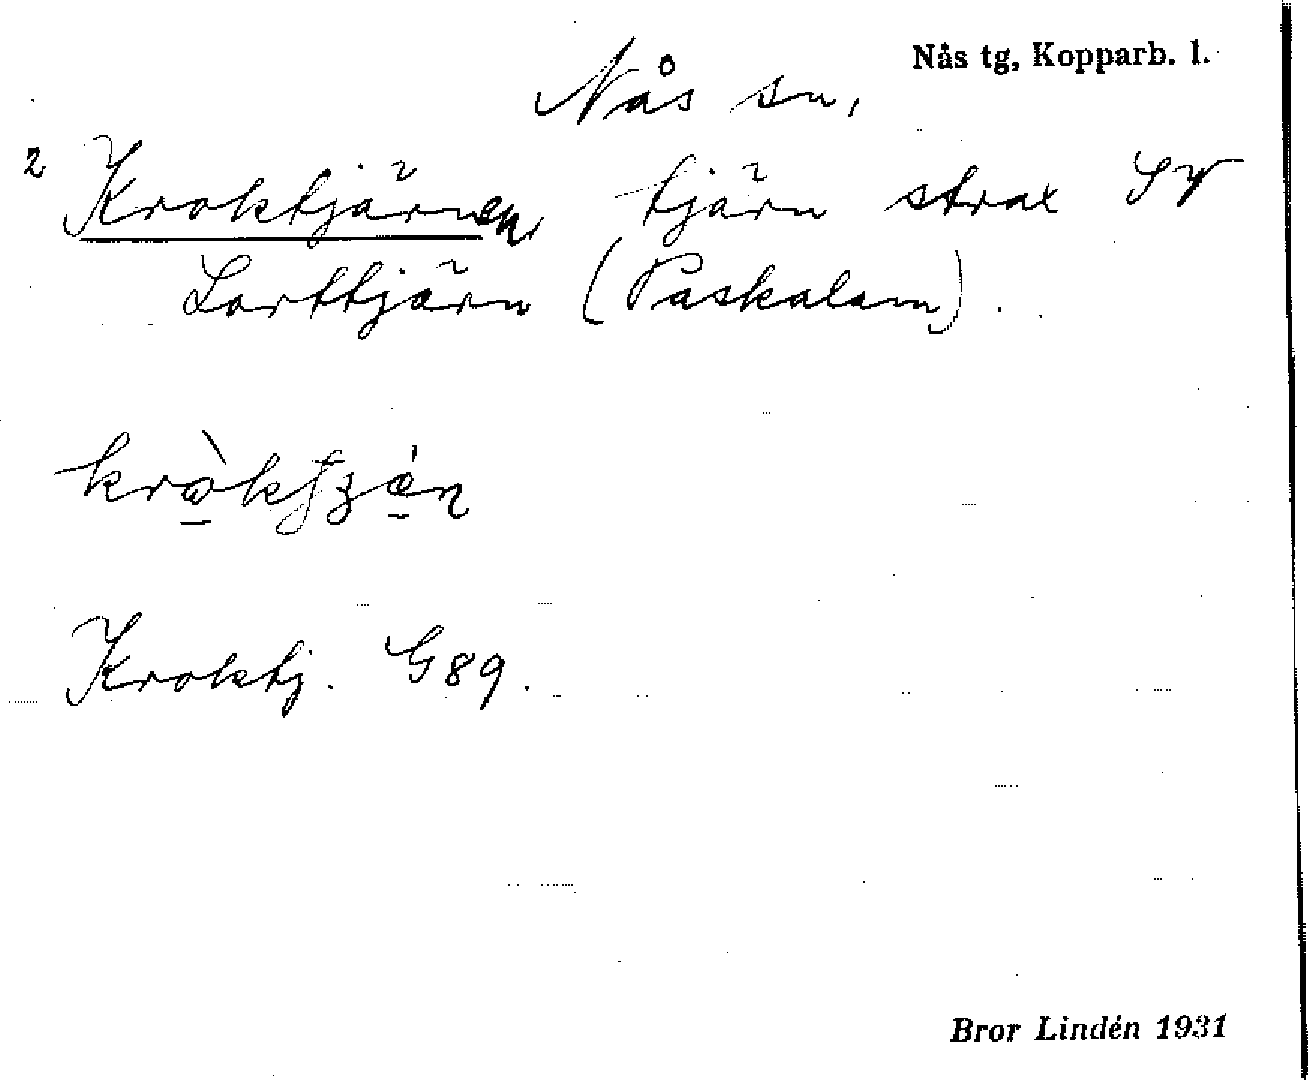 Nås tg, Kopparb. l.
Nås sn,
2 Kroktjärnen, tjärn strax SV
Lorttjärn (Paskalam).
Kroktj. G89.
Bror Lindén 1931